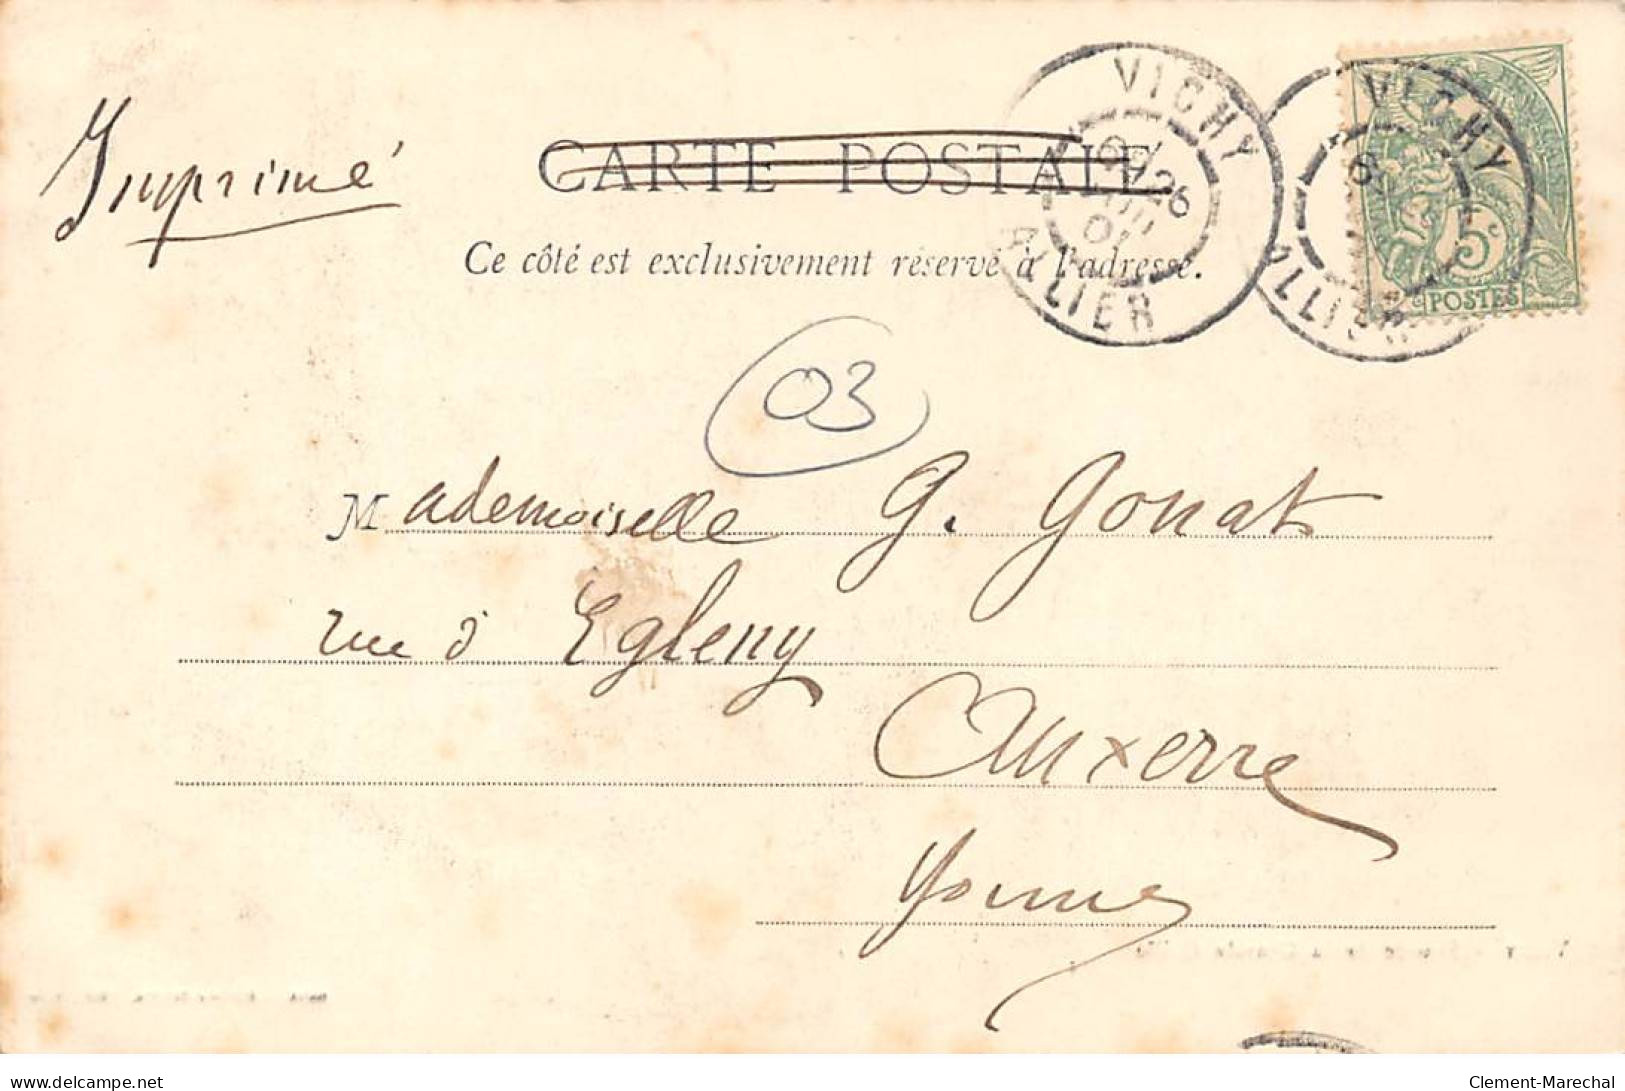 Imprimé
CARTE POSTALE
Ce côté est exclusivement réservé à l'adresse.
VICHY
26
ALLIER
VICHY
ALLIER
5c
POSTES
03
Mademoiselle G. Gonat
rue d'Egleny
Auxerre
Yonne
www.delcampe.net
Clement-Marechal